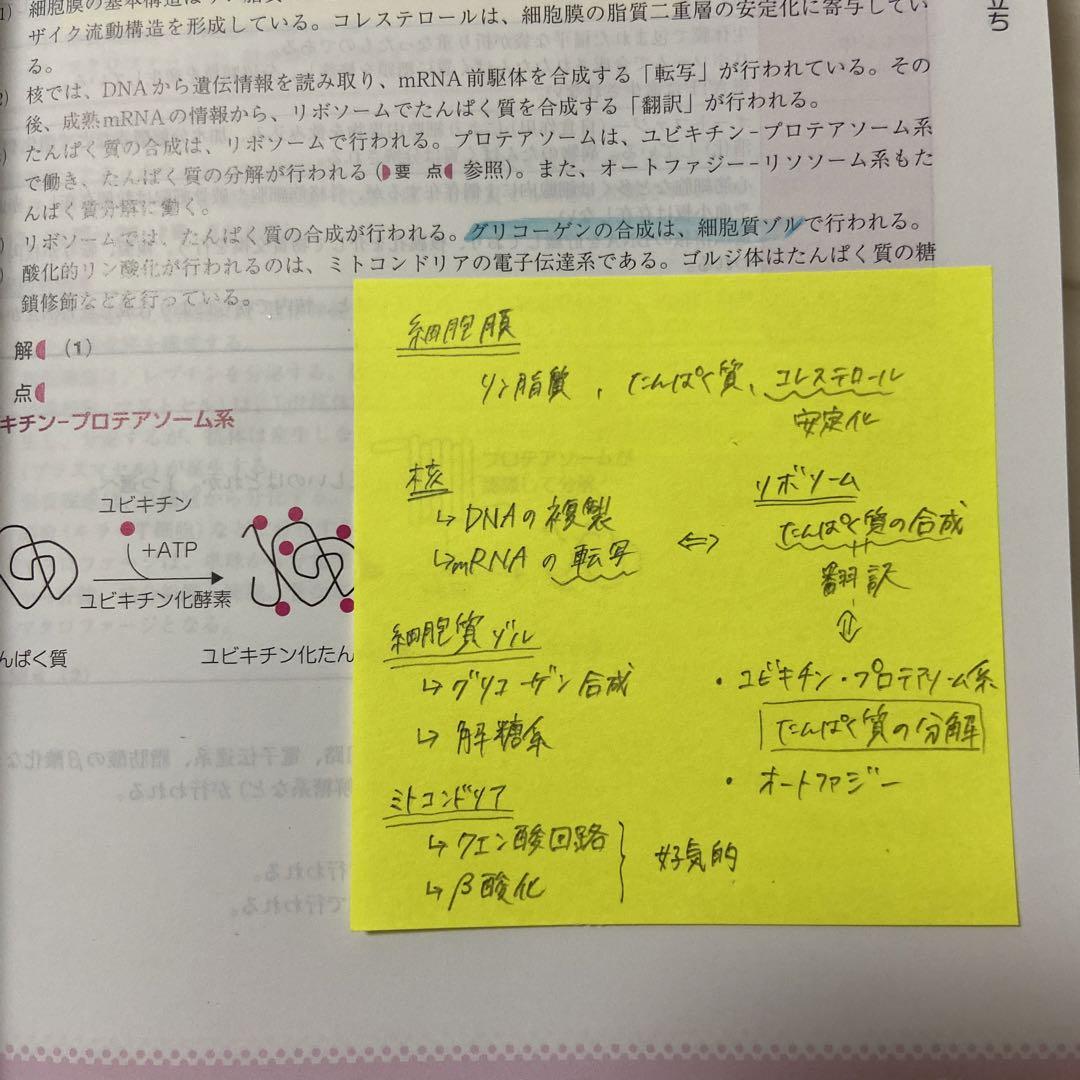 細胞膜の基本構造は
ザイク流動構造を形成している。コレステロールは、細胞膜の脂質二重層の安定化に寄与してい
る。
核では、DNAから遺伝情報を読み取り、mRNA前駆体を合成する「転写」が行われている。その
後、成熟mRNAの情報から、リボソームでたんぱく質を合成する「翻訳」が行われる。
たんぱく質の合成は、リボソームで行われる。プロテアソームは、ユビキチン-プロテアソーム系
で働き、たんぱく質の分解が行われる(要点 参照)。また、オートファジー-リソソーム系もた
んぱく質分解に働く。
リボソームでは、たんぱく質の合成が行われる。グリコーゲンの合成は、細胞質ゾルで行われる。
酸化的リン酸化が行われるのは、ミトコンドリアの電子伝達系である。ゴルジ体はたんぱく質の糖
鎖修飾などを行っている。
解 (1)
点
キチン-プロテアソーム系
ユビキチン
+ATP
ユビキチン化酵素
んぱく質
ユビキチン化たん
立ち
細胞膜
リン脂質, たんぱく質, コレステロール
安定化
核
↳ DNAの複製
↳ mRNAの転写
⇔
リボソーム
たんぱく質の合成
翻訳
⇕
細胞質ゾル
↳ グリコーゲン合成
↳ 解糖系
・ユビキチン・プロテアソーム系
たんぱく質の分解
・オートファジー
ミトコンドリア
↳ クエン酸回路
↳ β酸化
} 好気的